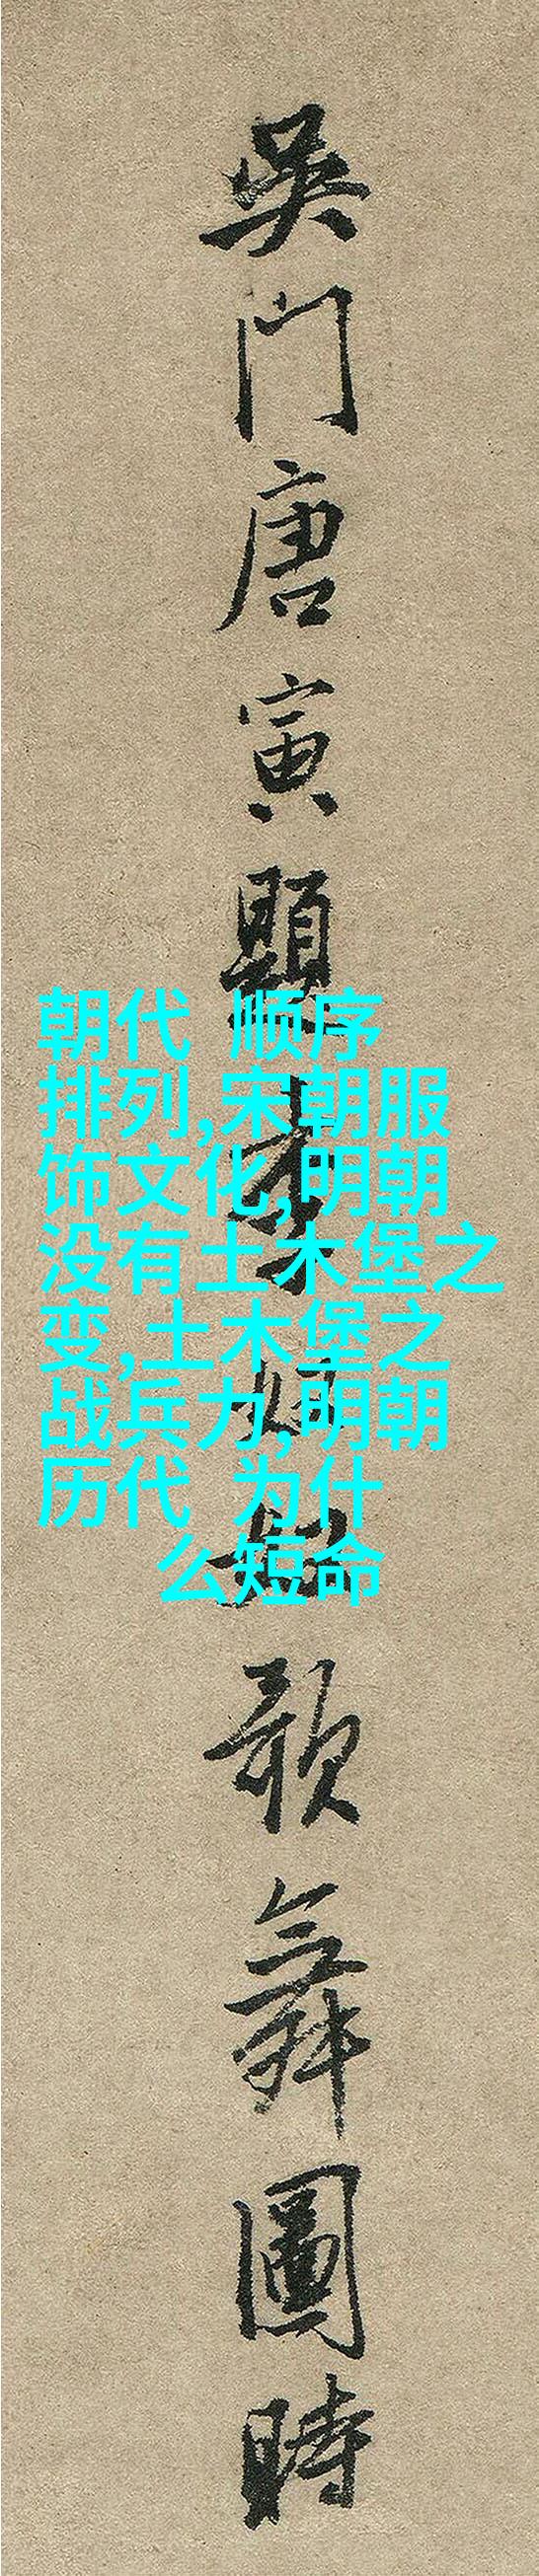 吳門唐寅題
歌舞圖時
朝代 顺序
排列,宋朝服
饰文化,明朝
没有土木堡之
变,土木堡之
战兵力,明朝
历代 为什
么短命